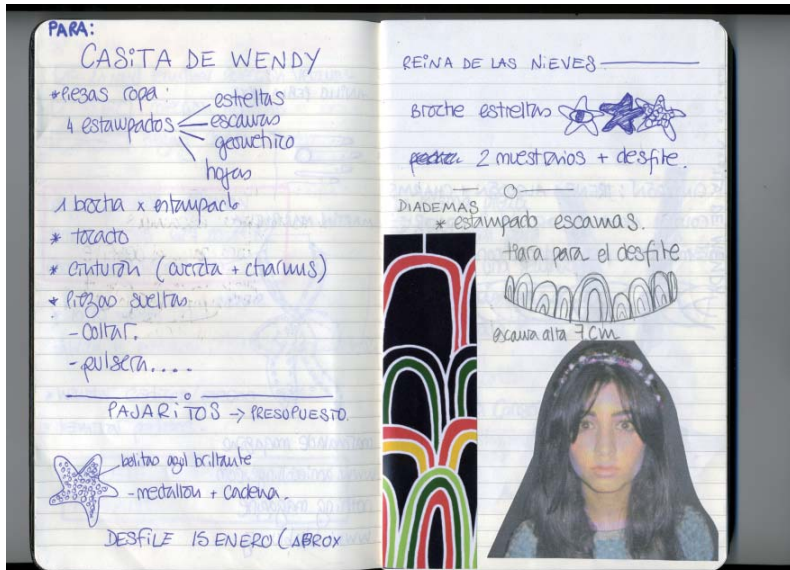 PARA:
CASITA DE WENDY
*Piezas ropa:
4 estampados
estrellas
escamas
geométrico
hojas
1 brocha x estampado
* tocado
* cinturón (cuerda + charms)
* Piezas sueltas
- Collar.
- pulsera....
PAJARITOS → PRESUPUESTO.
bolitas azul brillante
- medallón + cadena.
DESFILE 15 ENERO (ABROX
REINA DE LAS NIEVES
Broche estrellas
2 muestrarios + desfile.
DIADEMAS
* estampado escamas.
tiara para el desfile
escama alta 7 cm